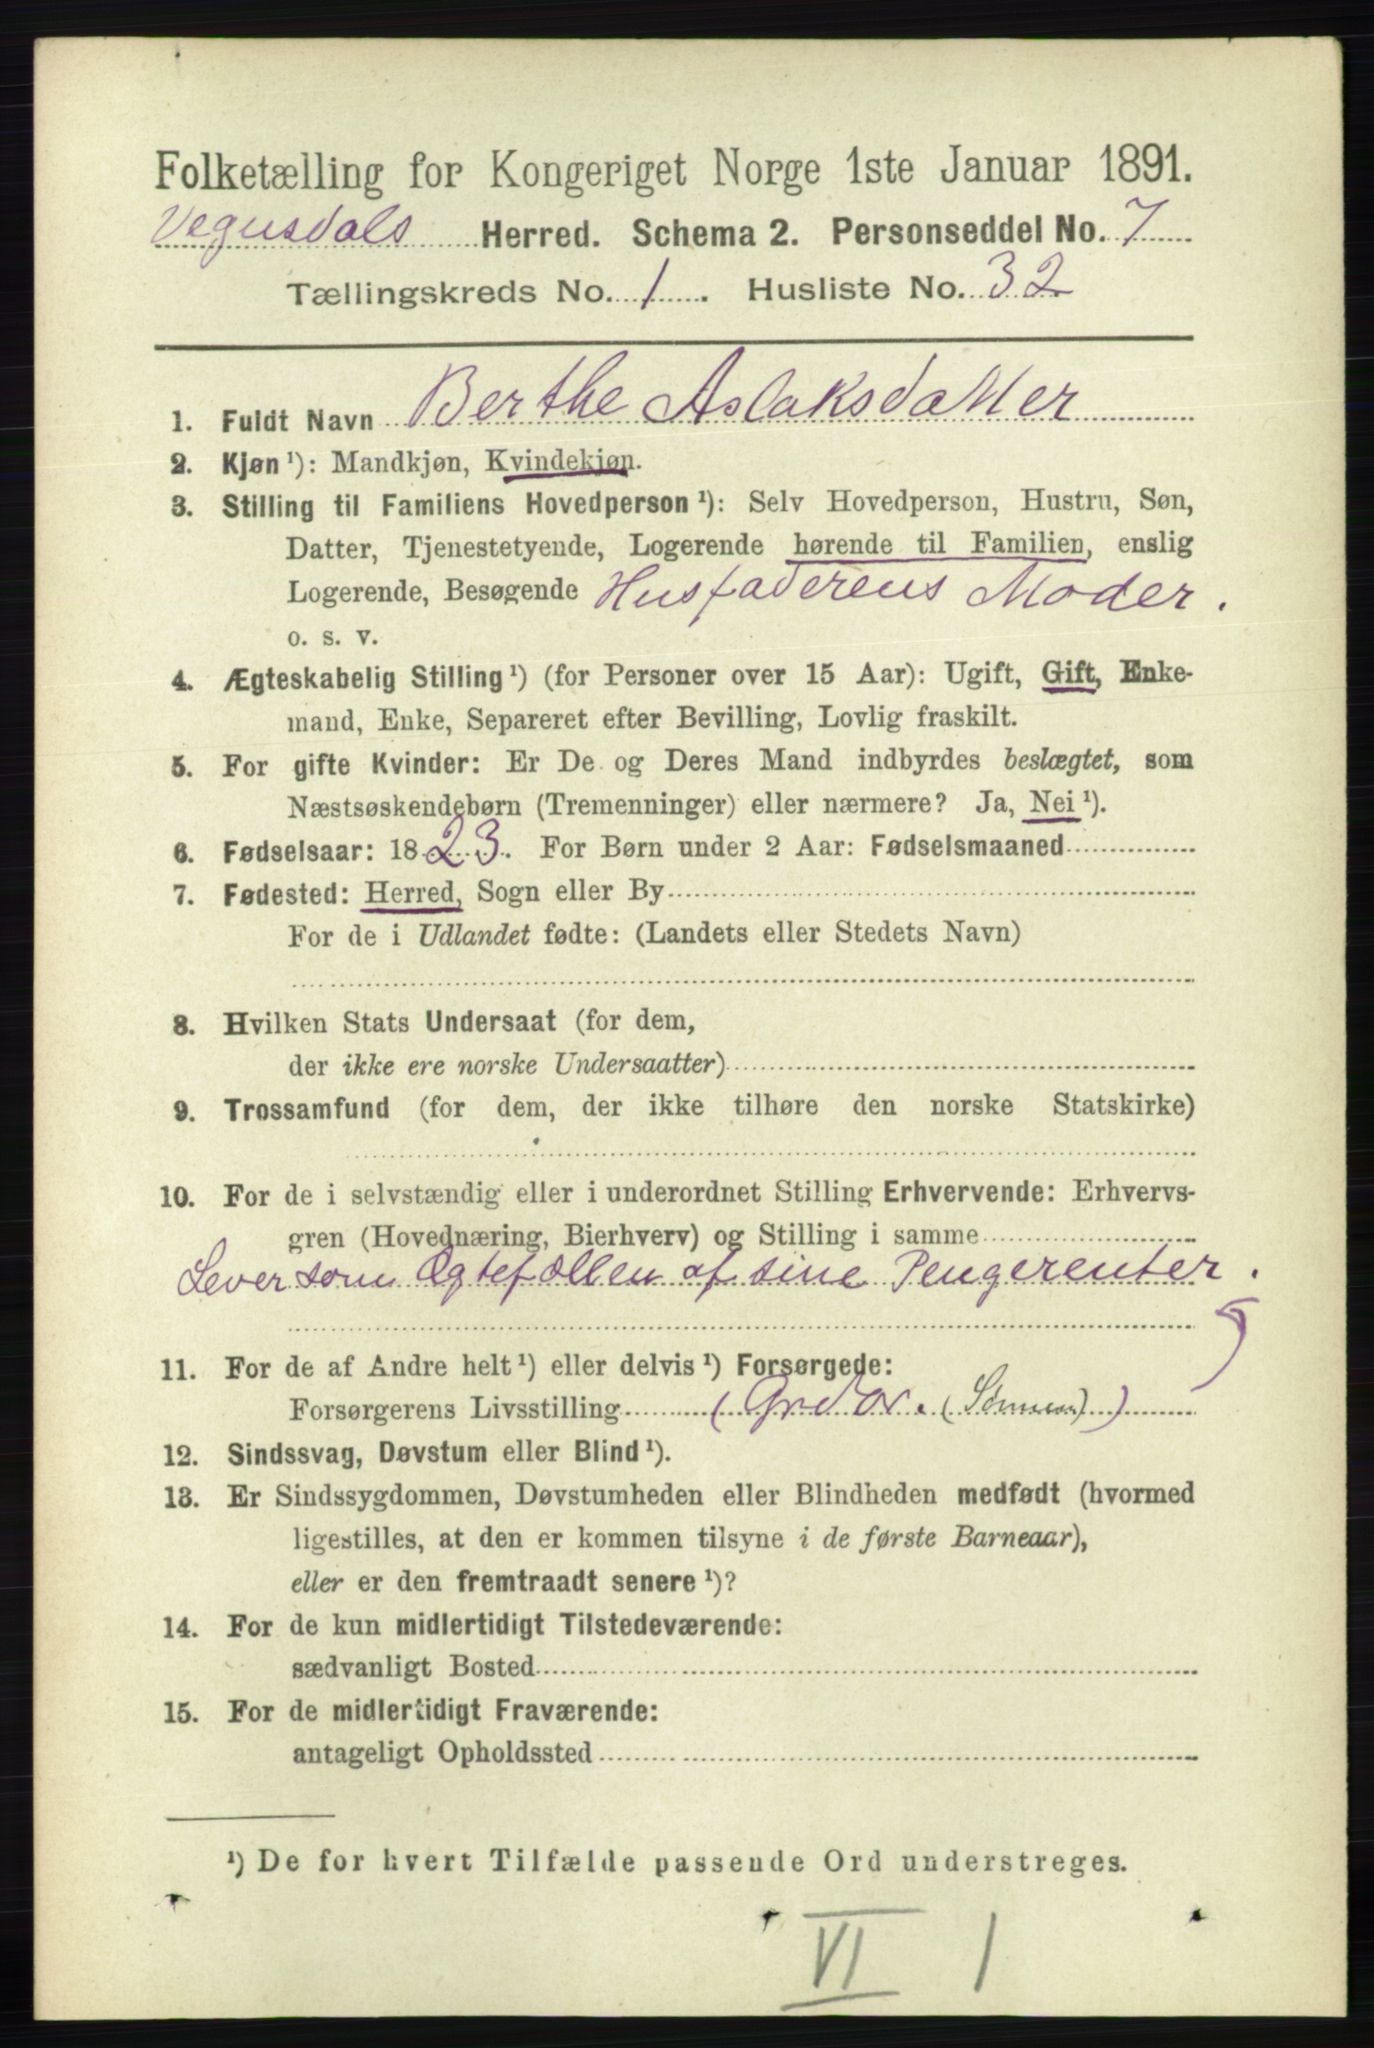 Folketælling for Kongeriget Norge 1ste Januar 1891.
Vegusdals Herred. Schema 2. Personseddel No. 7
Tællingskreds No. 1. Husliste No. 32
1. Fuldt Navn Berthe Aslaksdatter
2. Kjøn ¹): Mandkjøn, Kvindekjøn.
3. Stilling til Familiens Hovedperson ¹): Selv Hovedperson, Hustru, Søn,
Datter, Tjenestetyende, Logerende hørende til Familien, enslig
Logerende, Besøgende Husfaderens Moder.
o. s. v.
4. Ægteskabelig Stilling ¹) (for Personer over 15 Aar): Ugift, Gift, Enke-
mand, Enke, Separeret efter Bevilling, Lovlig fraskilt.
5. For gifte Kvinder: Er De og Deres Mand indbyrdes beslægtet, som
Næstsøskendebørn (Tremenninger) eller nærmere? Ja, Nei ¹).
6. Fødselsaar: 1823. For Børn under 2 Aar: Fødselsmaaned
7. Fødested: Herred, Sogn eller By
For de i Udlandet fødte: (Landets eller Stedets Navn)
8. Hvilken Stats Undersaat (for dem,
der ikke ere norske Undersaatter)
9. Trossamfund (for dem, der ikke tilhøre den norske Statskirke)
10. For de i selvstændig eller i underordnet Stilling Erhvervende: Erhvervs-
gren (Hovednæring, Bierhverv) og Stilling i samme
Lever som Ægtefællen af sine Pengerenter.
11. For de af Andre helt ¹) eller delvis ¹) Forsørgede:
Forsørgerens Livsstilling
12. Sindssvag, Døvstum eller Blind ¹).
13. Er Sindssygdommen, Døvstumheden eller Blindheden medfødt (hvormed
ligestilles, at den er kommen tilsyne i de første Barneaar),
eller er den fremtraadt senere ¹)?
14. For de kun midlertidigt Tilstedeværende:
sædvanligt Bosted
15. For de midlertidigt Fraværende:
antageligt Opholdssted
¹) De for hvert Tilfælde passende Ord understreges.
VI 1